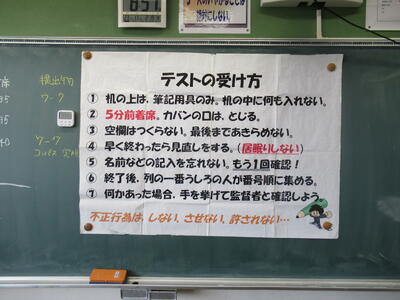 857
絶対にしない。
提出物
ワーク
ワーク
コンパス
35
35
40
テストの受け方
① 机の上は、筆記用具のみ。机の中に何も入れない。
② 5分前着席。カバンの口は、とじる。
③ 空欄はつくらない。最後まであきらめない。
④ 早く終わったら見直しをする。(居眠りしない)
⑤ 名前などの記入を忘れない。もう1回確認!
⑥ 終了後、列の一番うしろの人が番号順に集める。
⑦ 何かあった場合、手を挙げて監督者と確認しよう。
不正行為は、しない、させない、許されない…